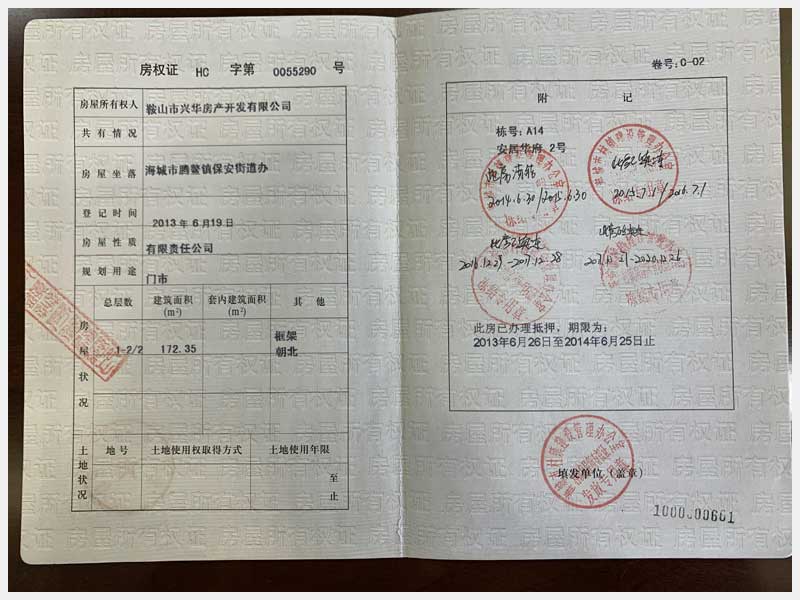 房权证 HC 字第 0055290 号
房屋所有权人 鞍山市兴华房产开发有限公司
共有情况
房屋坐落 海城市腾鳌镇保安街道办
登记时间 2013 年 6月19日
房屋性质 有限责任公司
规划用途 门市
房屋状况
总层数 建筑面积(m²) 套内建筑面积(m²) 其他
1-2/2 172.35 框架 朝北
土地状况
地号 土地使用权取得方式 土地使用年限
至
止
卷号:0-02
附记
栋号: A14
安居华府 2号
2014.6.30/2015.6.30
2015.7.1/2016.7.1
2016.12.29-2017.12.28
此房已办理抵押，期限为：
2013年6月26日至2014年6月25日止
填发单位（盖章）
1000000601